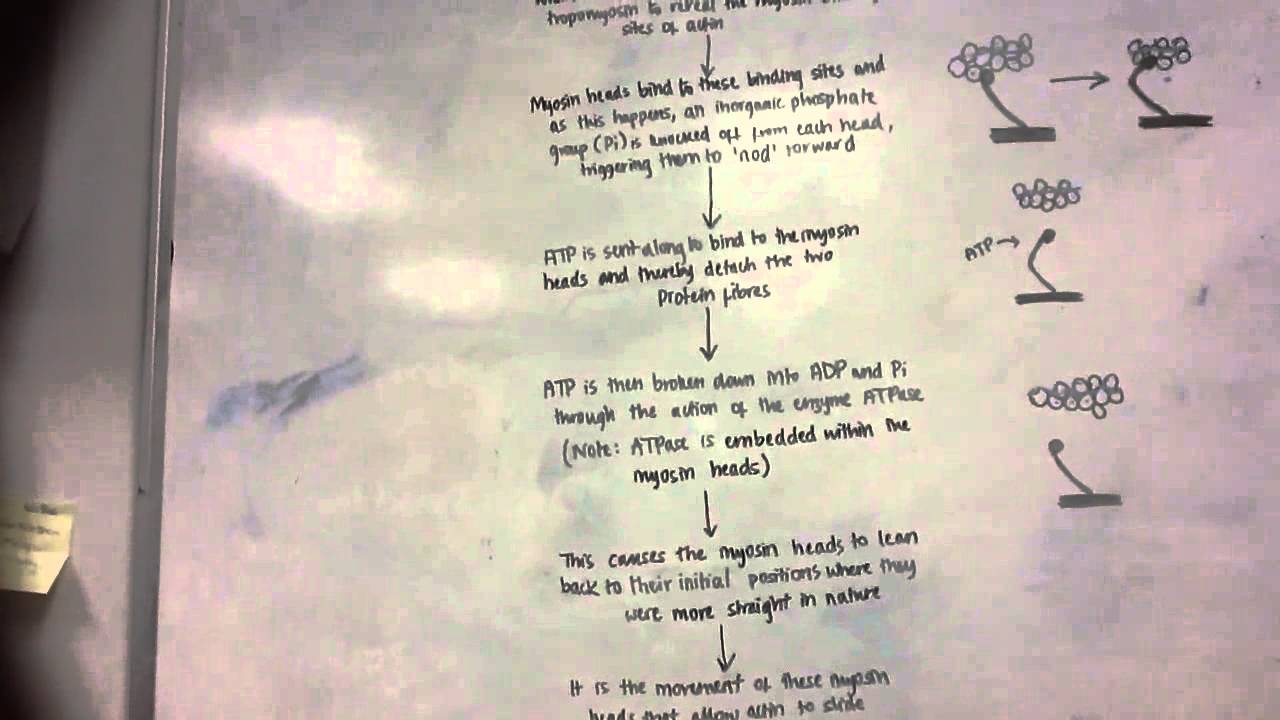 tropomyosin to reveal the myosin
sites of actin
Myosin heads bind to these binding sites and
as this happens, an inorganic phosphate
group (Pi) is knocked off from each head,
triggering them to 'nod' forward
ATP is sent along to bind to the myosin
heads and thereby detach the two
Protein fibres
ATP →
ATP is then broken down into ADP and Pi
through the action of the enzyme ATPase
(Note: ATPase is embedded within the
myosin heads)
This causes the myosin heads to lean
back to their initial positions where they
were more straight in nature
It is the movement of these myosin
heads that allow actin to slide